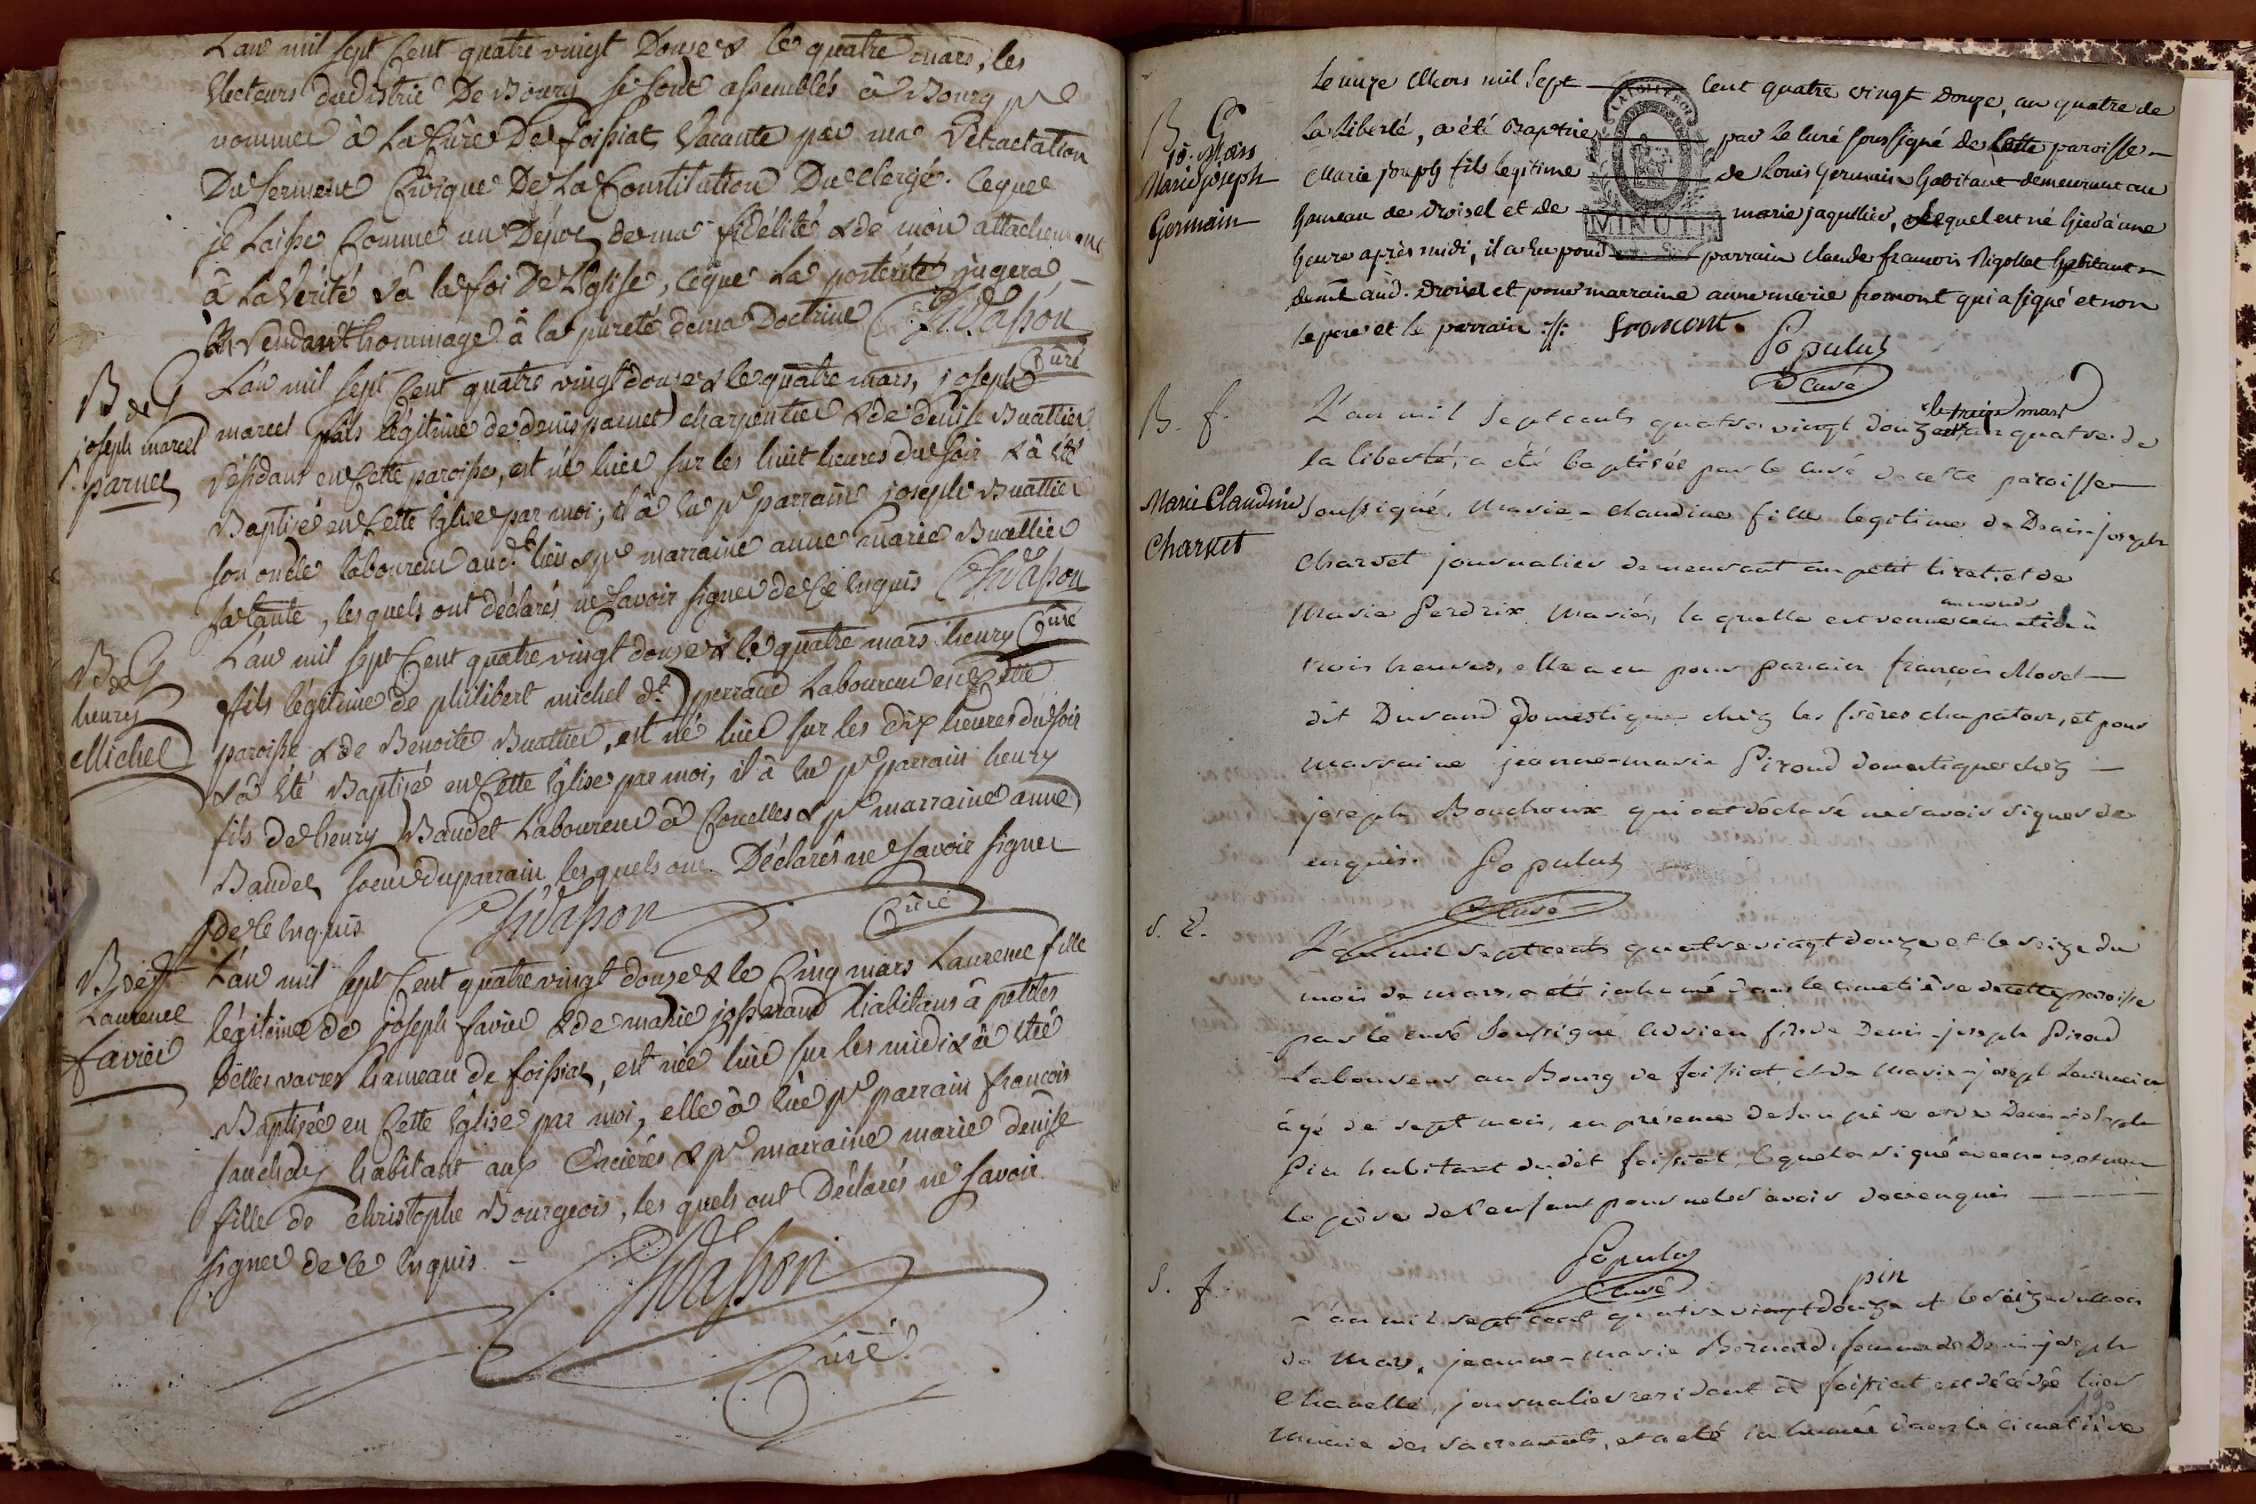 L'an mil sept Cent quatre vingt Douze & le quatre mars, les
Electeurs du district De Bourg se sont assemblés à Bourg pr
nommer à La Cure De foissiat Vacante par ma Retractation
Du Serment Civique De La Constitution Du Clergé. Ce que
je Laisse Comme un Dépot de ma fidélité & de mon attachement
à La Verité & à la foi De L'Eglise, Ce que La posterité jugera,
En Rendant hommage à la pureté de ma Doctrine Chivasson
Curé
B de G
joseph marcel
parnet
L'an mil sept Cent quatre vingt douze & le quatre mars, joseph
marcel fils légitime de denis parnet charpentier & de denise Buattier
Résidant en Cette paroisse, est né hier sur les huit heures du soir & à été
Baptisé en Cette Eglise par moi; il à Eu pr parrain joseph Buattier
son oncle laboureur aud. lieu & pr marraine anne marie Buattier
sa tante, lesquels ont déclarés ne Savoir signer de Ce Enquis Chivasson
Curé
B de G
henry
Michel
L'an mil sept Cent quatre vingt douze & le quatre mars henry
fils légitime de philibert michel dt. perraud Laboureur en Cette
paroisse & de Benoite Buattier, est né hier sur les dix heures du soir
& à été Baptisé en Cette Eglise par moi, il à Eu pr parrain henry
fils de henry Baudet Laboureur à Corcelles & pr marraine anne
Baudet soeur du parrain, lesquels ont Déclarés ne Savoir signer
de Ce Enquis Chivasson
Curé
B de f
Laurence
favier
L'an mil sept Cent quatre vingt douze & le Cinq mars Laurence fille
légitime de joseph favier & de marie josserand habitans à petites
Belles vavres hameau de foissiat, est née hier sur les midi & à été
Baptisée en Cette Eglise par moi, elle à Eüe pr parrain françois
habitant aux & pr marraine marie denise
fille de Christophe Bourgeois, les quels ont Déclarés ne Savoir
signer de Ce Enquis. Chivasson
Curé
Le onze Mars mil Sept Cent quatre vingt Douze, an quatre de
La Liberté, a été Baptisé par Le Curé soussigné de Cette paroisse
Marie joseph fils legitime de Louis Germain habitant demeurant au
hameau de Droisel et de marie jaquellier, Lequel est né hier à une
heure après midi, il a Eu pour parrain claude francois Rigollet habitant
demt. aud. Droisel et pour marraine anne marie fromont qui a signé et non
le pere et le parrain ://: fromont.
Populus
Curé
B. G
15. Mars
Marie Joseph
Germain
MINUTE
B. f.
Marie Claudine
Charvet
le treize mars
L'an mil Sept cents quatre vingt douze an quatre de
la liberté, a été baptisée par le curé de cette paroisse
Soussigné, Marie-claudine fille legitime de Denis-joseph
Charvet journalier demeurant au petit tiret, et de
Marie Perdrix Mariés, la quelle est venue au monde à
trois heures, elle a eu pour parrain françois Morel
dit Durand domestique chez les frères chapatour, et pour
marraine jeanne-marie Piroud domestique chez
joseph Bouchoux qui ont déclaré ne savoir signer de
enquis. Populus
Curé
S. E.
L'an mil Sept cents quatre vingt douze et le seize du
mois de mars, a été inhumé dans le cimetière de cette paroisse
par le curé Soussigné Adrien fils de Denis-joseph Piroud
Laboureur au Bourg de foissiat, et de Marie-joseph
âgé de sept mois, en présence de son père et de Denis-joseph
Pin habitant dudit foissiat, lequel a signé avec nous, et non
le père de l'enfant pour ne le savoir de ce enquis
Populus
Curé
pin
S. f.
L'an mil sept cent quatre vingt douze et le seize du mois
de Mars, jeanne-marie Bernard femme de Denis-joseph
Chanelle, journalier residant à foissiat, est décédée hier
munie des Sacrements, et a été inhumée dans le cimetière